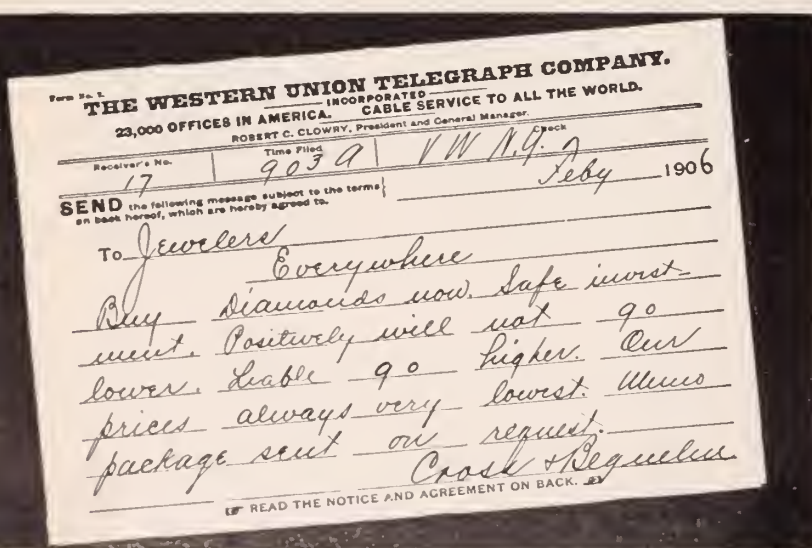 Form No. 2.
THE WESTERN UNION TELEGRAPH COMPANY.
INCORPORATED
23,000 OFFICES IN AMERICA. CABLE SERVICE TO ALL THE WORLD.
ROBERT C. CLOWRY, President and General Manager.
Receiver's No. Time Filed Check
17 903 A VW N.Y.
SEND the following message subject to the terms
on back hereof, which are hereby agreed to.
Feby 1906
To Jewelers
Everywhere
Buy Diamonds now. Safe invest-
ment. Positively will not go
lower. Liable go higher. Our
prices always very lowest. Memo
package sent on request.
Cross & Beguelin
READ THE NOTICE AND AGREEMENT ON BACK.